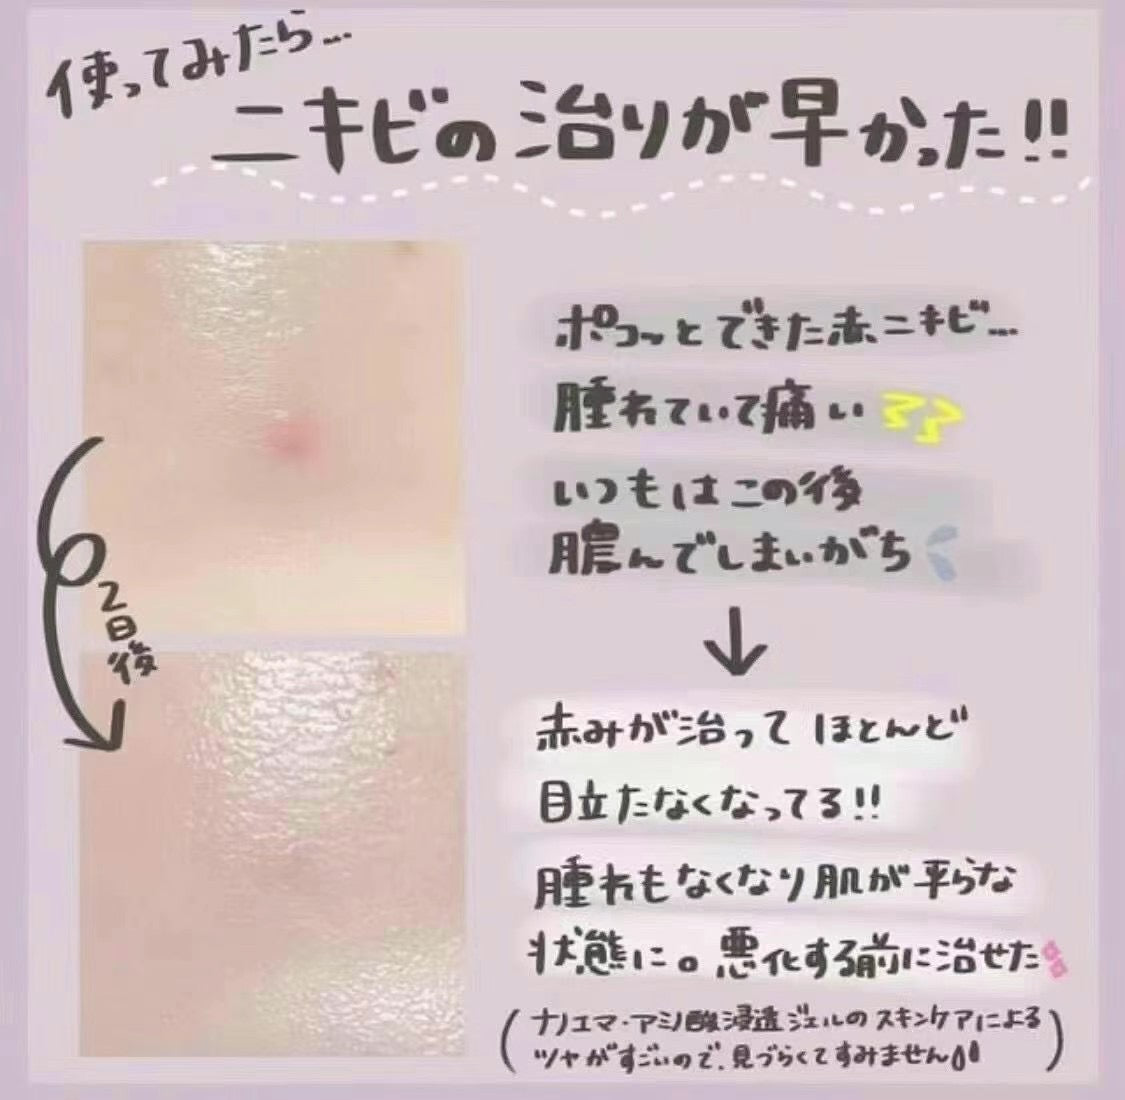 使ってみたら...
ニキビの治りが早かった!!
ポコッとできた赤ニキビ...
腫れていて痛い
いつもはこの後
膿んでしまいがち
2日後
赤みが治ってほとんど
目立たなくなってる!!
腫れもなくなり肌が平らな
状態に。悪化する前に治せた
(ナノエマ・アミノ酸浸透ジェルのスキンケアによる
ツヤがすごいので、見づらくてすみません)